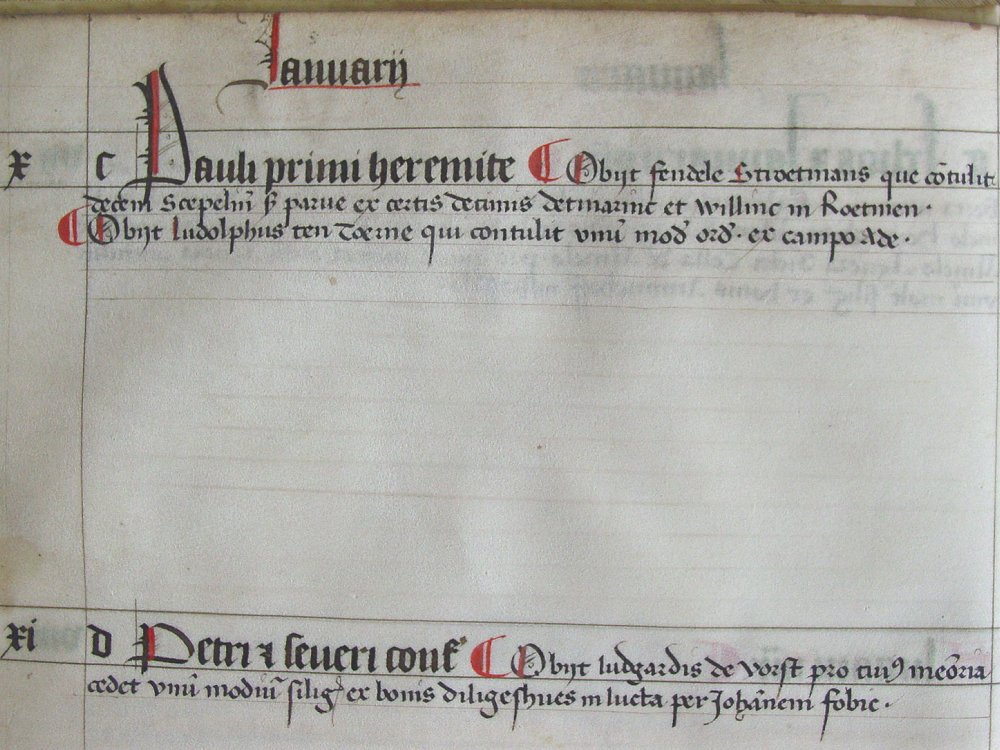 Januarij
x c Pauli primi heremite ⁋ Obijt fendele Stroetmans que cōtulit
decem Scepelīn ẏ parue ex certis decimis detmarinc et willinc in Roetmen.
⁋ Obijt Ludolphus ten Toerne qui contulit vnū mod̄ ord̄. ex campo Ade.
xi d Petri ⁊ Seueri conf̄ ⁋ Obijt ludgardis de vorst pro cuiꝰ meōria
cedet vnū modiū siliḡ ex bonis diligeshues in lucta per Johānem fobic.